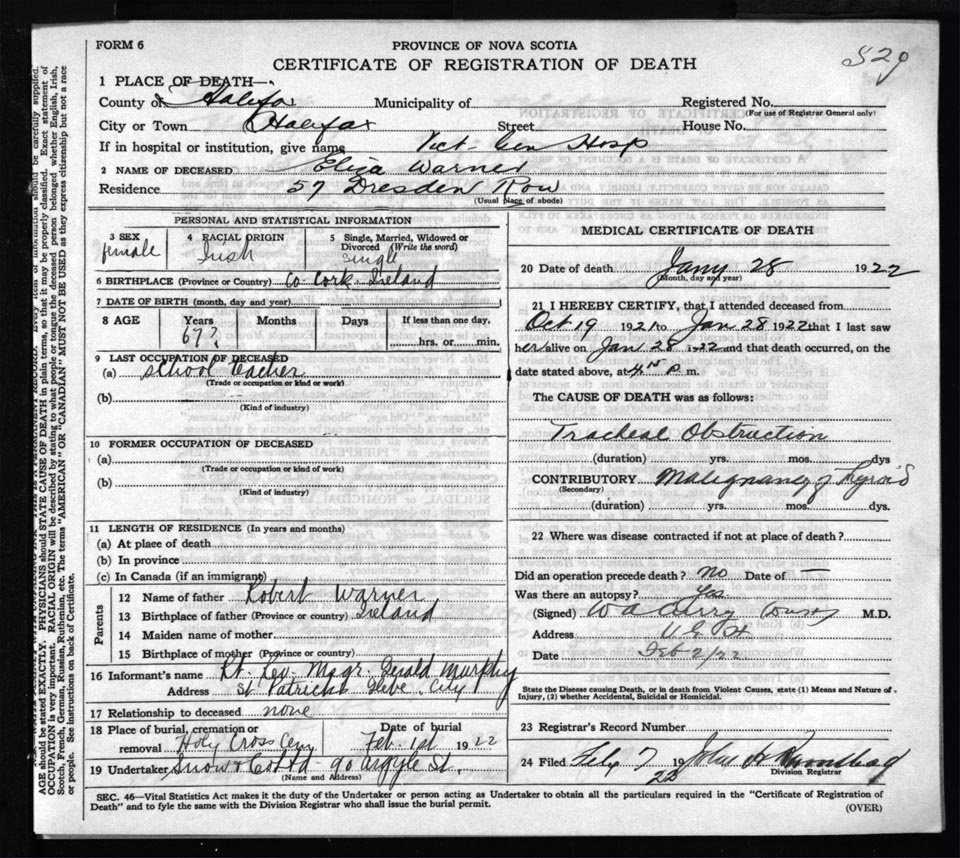 FORM 6
PROVINCE OF NOVA SCOTIA
529
CERTIFICATE OF REGISTRATION OF DEATH
1 PLACE OF DEATH—
County of Halifax Municipality of Registered No.
(For use of Registrar General only)
City or Town Halifax Street House No.
If in hospital or institution, give name Vict. Gen Hosp
2 NAME OF DECEASED Eliza Warner
Residence 57 Dresden Row
(Usual place of abode)
PERSONAL AND STATISTICAL INFORMATION
3 SEX female
4 RACIAL ORIGIN Irish
5 Single, Married, Widowed or Divorced (Write the word) single
6 BIRTHPLACE (Province or Country) Co. Cork. Ireland
7 DATE OF BIRTH (month, day and year)
8 AGE Years Months Days If less than one day.
67? hrs. or min.
9 LAST OCCUPATION OF DECEASED
(a) School teacher
(Trade or occupation or kind or work)
(b)
(Kind of industry)
10 FORMER OCCUPATION OF DECEASED
(a)
(Trade or occupation or kind of work)
(b)
(Kind of industry)
11 LENGTH OF RESIDENCE (In years and months)
(a) At place of death
(b) In province
(c) In Canada (if an immigrant)
Parents
12 Name of father Robert Warner
13 Birthplace of father (Province or country) Ireland
14 Maiden name of mother
15 Birthplace of mother (Province or country)
16 Informant's name Rt. Rev. Msgr. Gerald Murphy
Address St Patricks Glebe, City
17 Relationship to deceased none
18 Place of burial, cremation or removal Holy Cross Cemy
Date of burial Feb. 1st 1922
19 Undertaker Snow & Co Ltd 90 Argyle St.
(Name and Address)
MEDICAL CERTIFICATE OF DEATH
20 Date of death Jany 28 1922
(Month, day and year)
21 I HEREBY CERTIFY, that I attended deceased from
Oct 19 1921 to Jan 28 1922 that I last saw
her alive on Jan 28 1922 and that death occurred, on the
date stated above, at 4.15 P. m.
The CAUSE OF DEATH was as follows:
Tracheal Obstruction
(duration) yrs. mos. dys
CONTRIBUTORY Malignancy of Thyroid
(Secondary)
(duration) yrs. mos. dys.
22 Where was disease contracted if not at place of death?
Did an operation precede death? No Date of —
Was there an autopsy? Yes
(Signed) M.D.
Address V.G.H
Date Feb 2/22
State the Disease causing Death, or in death from Violent Causes, state (1) Means and Nature of
Injury, (2) whether Accidental, Suicidal or Homicidal.
23 Registrar's Record Number
24 Filed Feby 7 1922 John H
Division Registrar
SEC. 46—Vital Statistics Act makes it the duty of the Undertaker or person acting as Undertaker to obtain all the particulars required in the "Certificate of Registration of
Death" and to fyle the same with the Division Registrar who shall issue the burial permit.
(OVER)
AGE should be stated EXACTLY. PHYSICIANS should STATE CAUSE OF DEATH in plain terms, so that it may be properly classified. Exact statement of
OCCUPATION is very important. RACIAL ORIGIN will be described by stating to what people or tongue the deceased person belonged whether English, Irish,
Scotch, French, German, Russian, Ruthenian, etc. The terms "AMERICAN" OR "CANADIAN" MUST NOT BE USED as they express citizenship but not a race
or people. See instructions on back of Certificate.